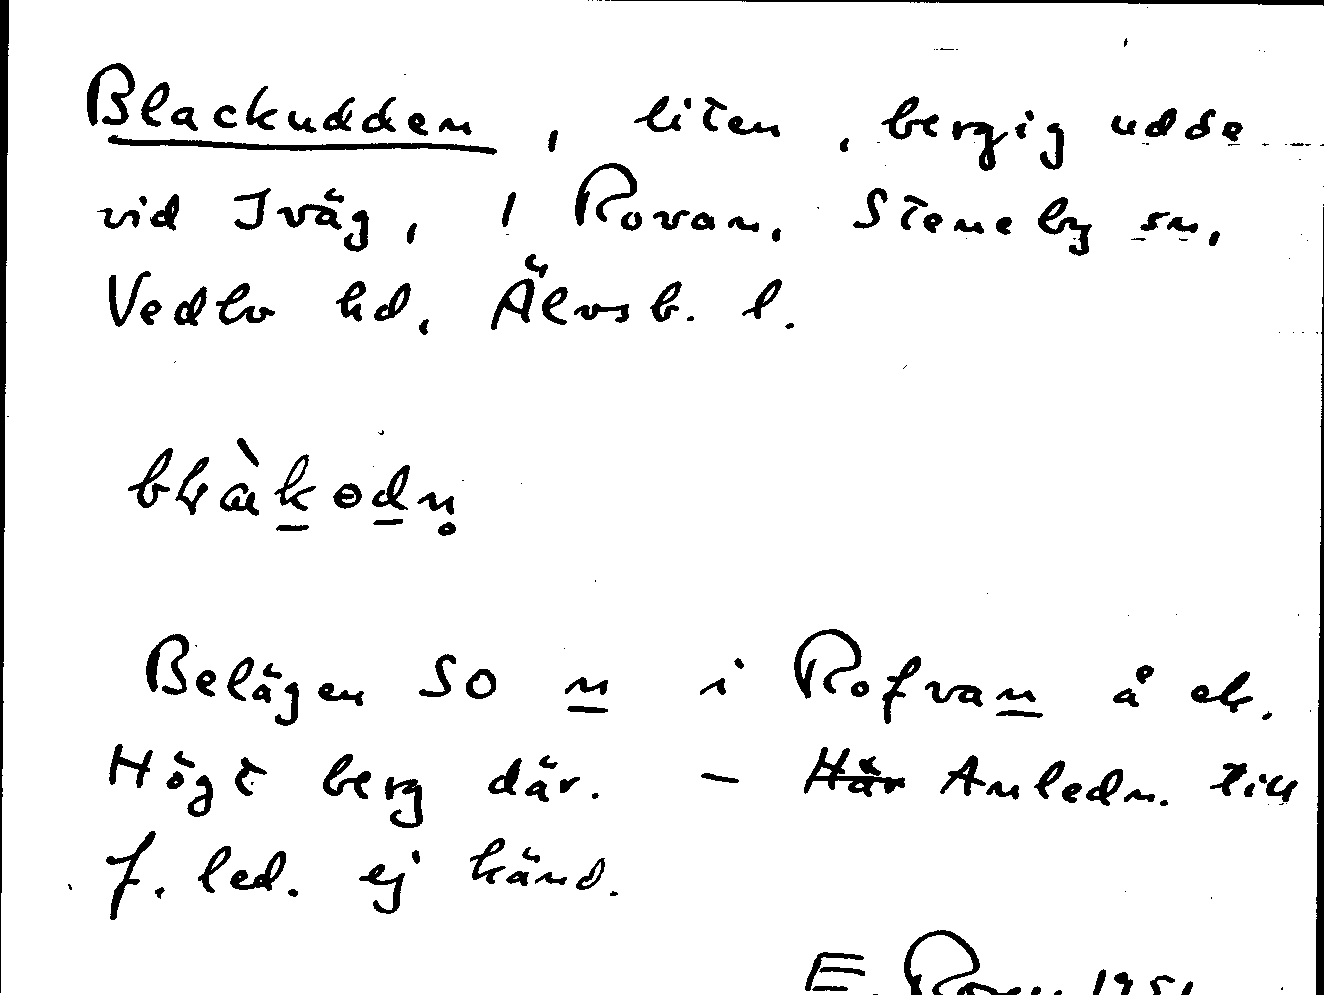 Blackudden, liten, bergig udde
vid Iväg, i Rovan, Steneby sn,
Vedbo hd, Älvsb. l.
Belägen SO n i Rofvan å ek.
Högt berg där. – Här Anledn. till
f. led. ej känd.
E. 1951